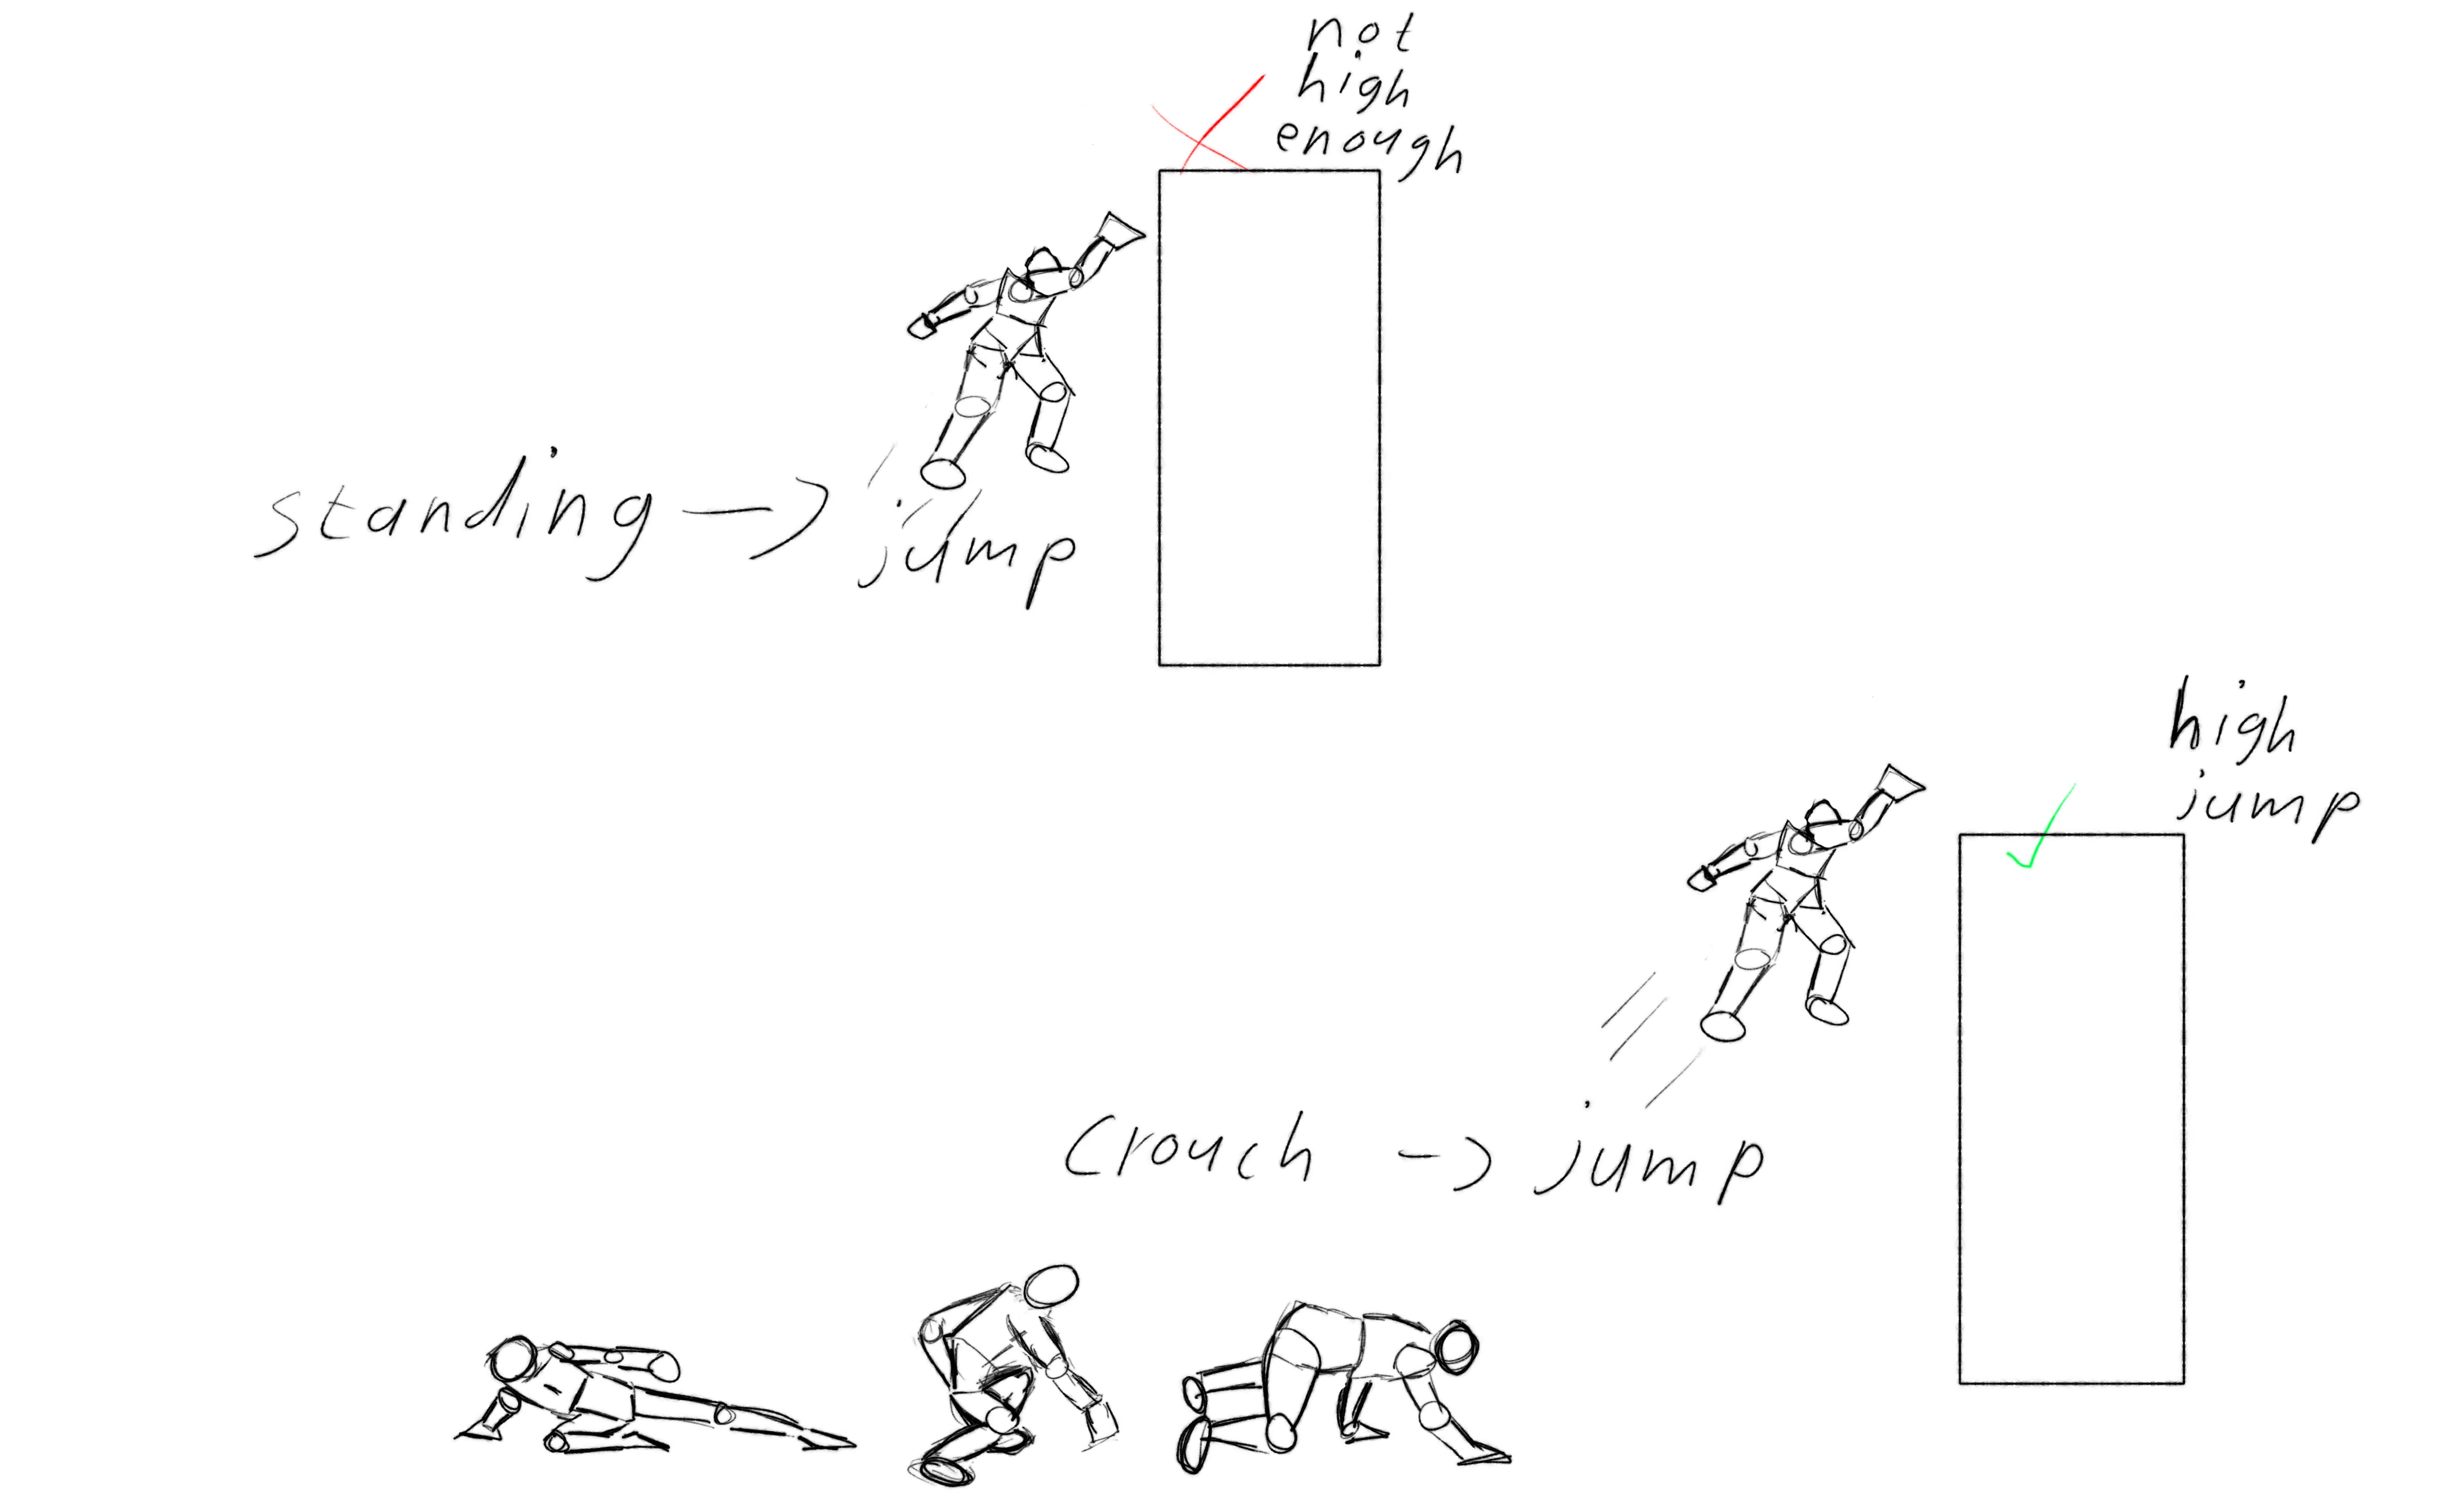 not
high
enough
standing -> jump
high
jump
Crouch -> jump